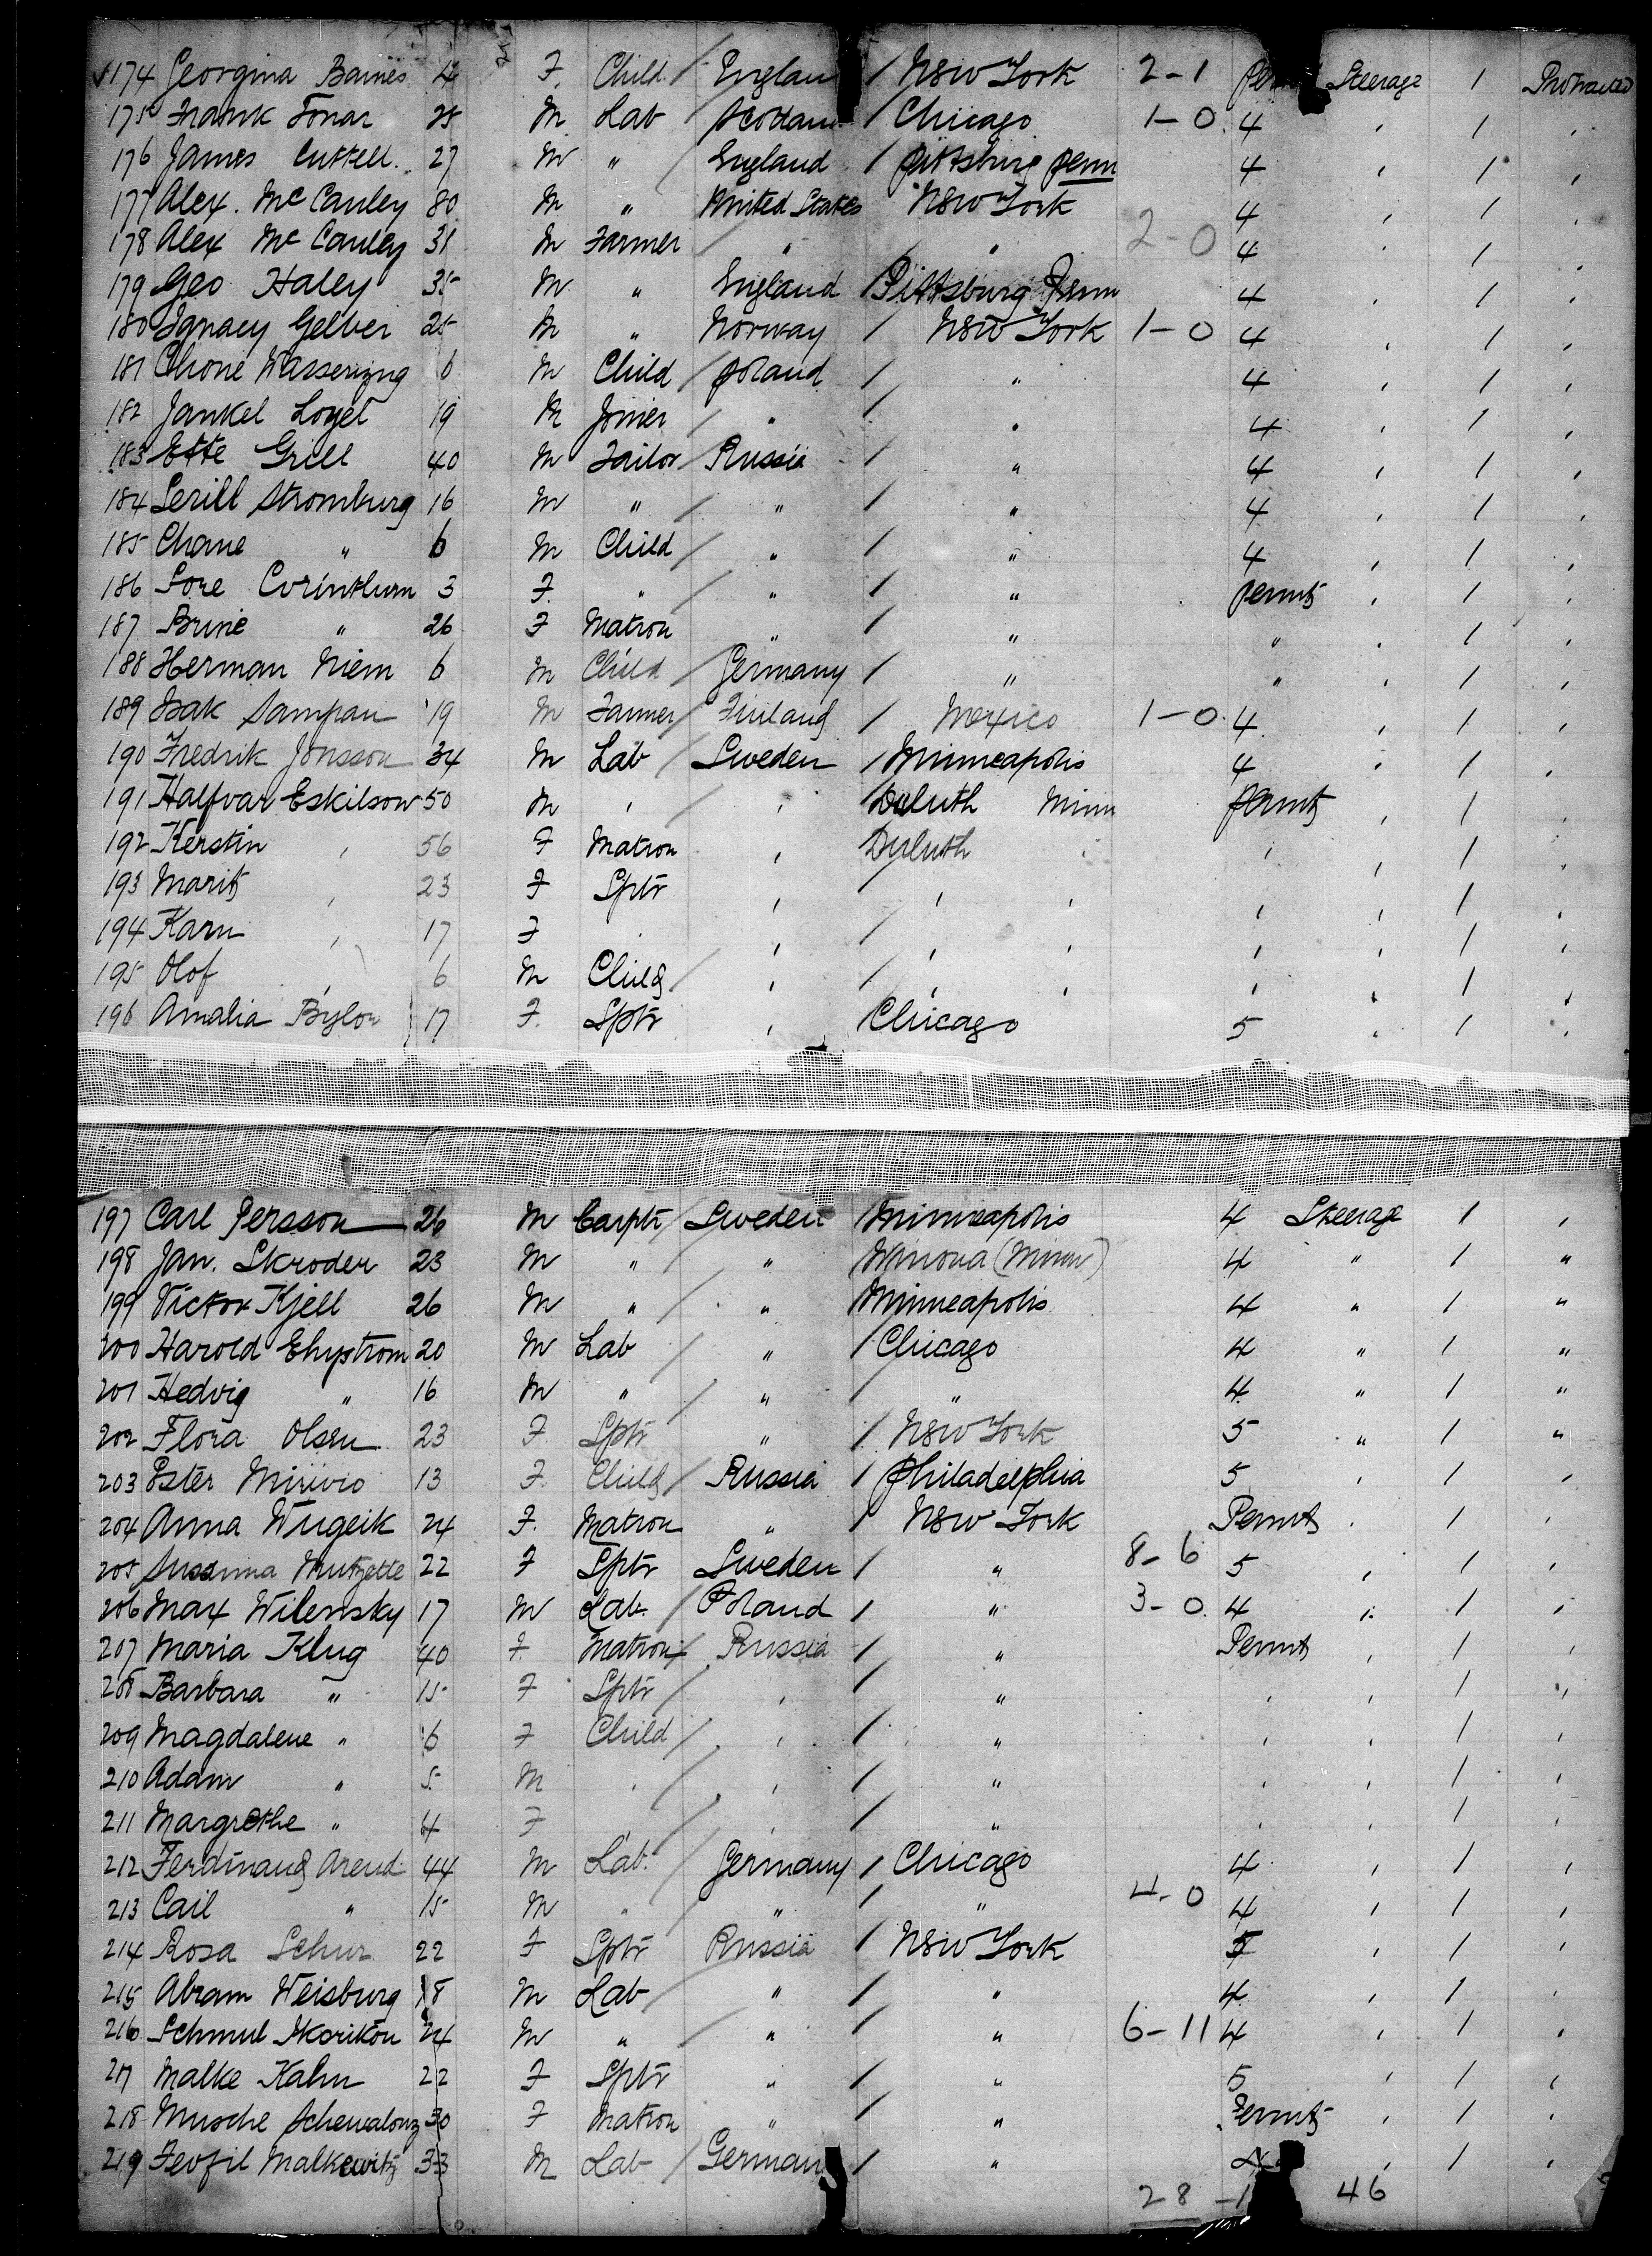 174 Georgina Baines 4 F. Child / Englan / New York 2-1 Steerage 1 Protracted
175 Frank Tonar 25 M Lab Scotland / Chicago 1-0 4 , 1 ,
176 James Cuttell. 27 M " / England / Pittsburg Penn 4 , 1 ,
177 Alex. McCauley 80 M " United States New York 4 , 1 ,
178 Alex McCauley 31 M Farmer / " / " 2-0 4 , 1 ,
179 Geo Haley 35 M " England Pittsburg Penn 4 , 1 ,
180 Ignacy Gelber 25 M " Norway / New York 1-0 4 , 1 ,
181 Chone 6 M Child / Poland / " 4 , 1 ,
182 Jankel Loyet 19 M Joiner / " / " 4 , 1 ,
183 Ette Grill 40 M Tailor / Russia / " 4 , 1 ,
184 Serill Stromburg 16 M " / " / " 4 , 1 ,
185 Chane " 6 M Child / " / " 4 , 1 ,
186 Sore 3 F. " / " / " Permit , 1 ,
187 Brine " 26 F Matron " / " " , 1 ,
188 Herman Niem 6 M Child / Germany / " " , 1 ,
189 Isak Sampan 19 M Farmer / Finland / Mexico 1-0 4 , 1 ,
190 Fredrik Jonsson 34 M Lab / Sweden / Minneapolis 4 , 1 ,
191 Halfvar Eskilson 50 M , / , / Duluth Minn Permit , 1 ,
192 Kerstin , 56 F Matron , Duluth , , , 1 ,
193 Marit , 23 F Sptr , , , , , 1 ,
194 Karn , 17 F . , / , , , , 1 ,
195 Olof , 6 M Child / , / , , , , 1 ,
196 Amalia Bylow 17 F. Sptr , Chicago 5 , 1 ,
197 Carl Persson 26 M Carptr / Sweden / Minneapolis 4 Steerage 1 ,
198 Jan. Skroder 23 M " " Winona (Minn) 4 " 1 "
199 Victor Kjell 26 M " / " Minneapolis 4 " 1 "
200 Harold Ehystrom 20 M Lab / " / Chicago 4 " 1 "
201 Hedvig " 16 M " / " / " 4 " 1 "
202 Flora Olsen 23 F Sptr " / New York 5 " 1 "
203 Ester 13 F. Child / Russia / Philadelphia 5 , 1 ,
204 Anna Wugeik 24 F. Matron " / New York Permit . 1 ,
205 Susanna 22 F Sptr Sweden / " 8-6 5 , 1 ,
206 Max Wilensky 17 M Lab. / Poland / " 3-0 4 , 1 ,
207 Maria Klug 40 F. Matron / Russia / " Permit , 1 ,
208 Barbara " 15 F Sptr / , / " , , 1 ,
209 Magdalene " 6 F Child / , / " , , 1 ,
210 Adam " 5 M , / , / " , , 1 ,
211 Margrethe " 4 F , / , / " , , 1 ,
212 Ferdinand Arend 44 M Lab. / Germany / Chicago 4 , 1 ,
213 Cail " 15 M " / " / " 4-0 4 , 1 ,
214 Rosa Schur 22 F Sptr Russia / New York 5 , 1 ,
215 Abram Weisburg 18 M Lab / " / " 4 , 1 ,
216 Schmul 24 M " / " / " 6-11 4 , 1 ,
217 Malke Kahn 22 F Sptr " / " 5 , 1 ,
218 Musche 30 F Matron " / " Permit , 1 ,
219 Feofil Malkewitz 33 M Lab / German / " 4 , 1 ,
28 -1 46